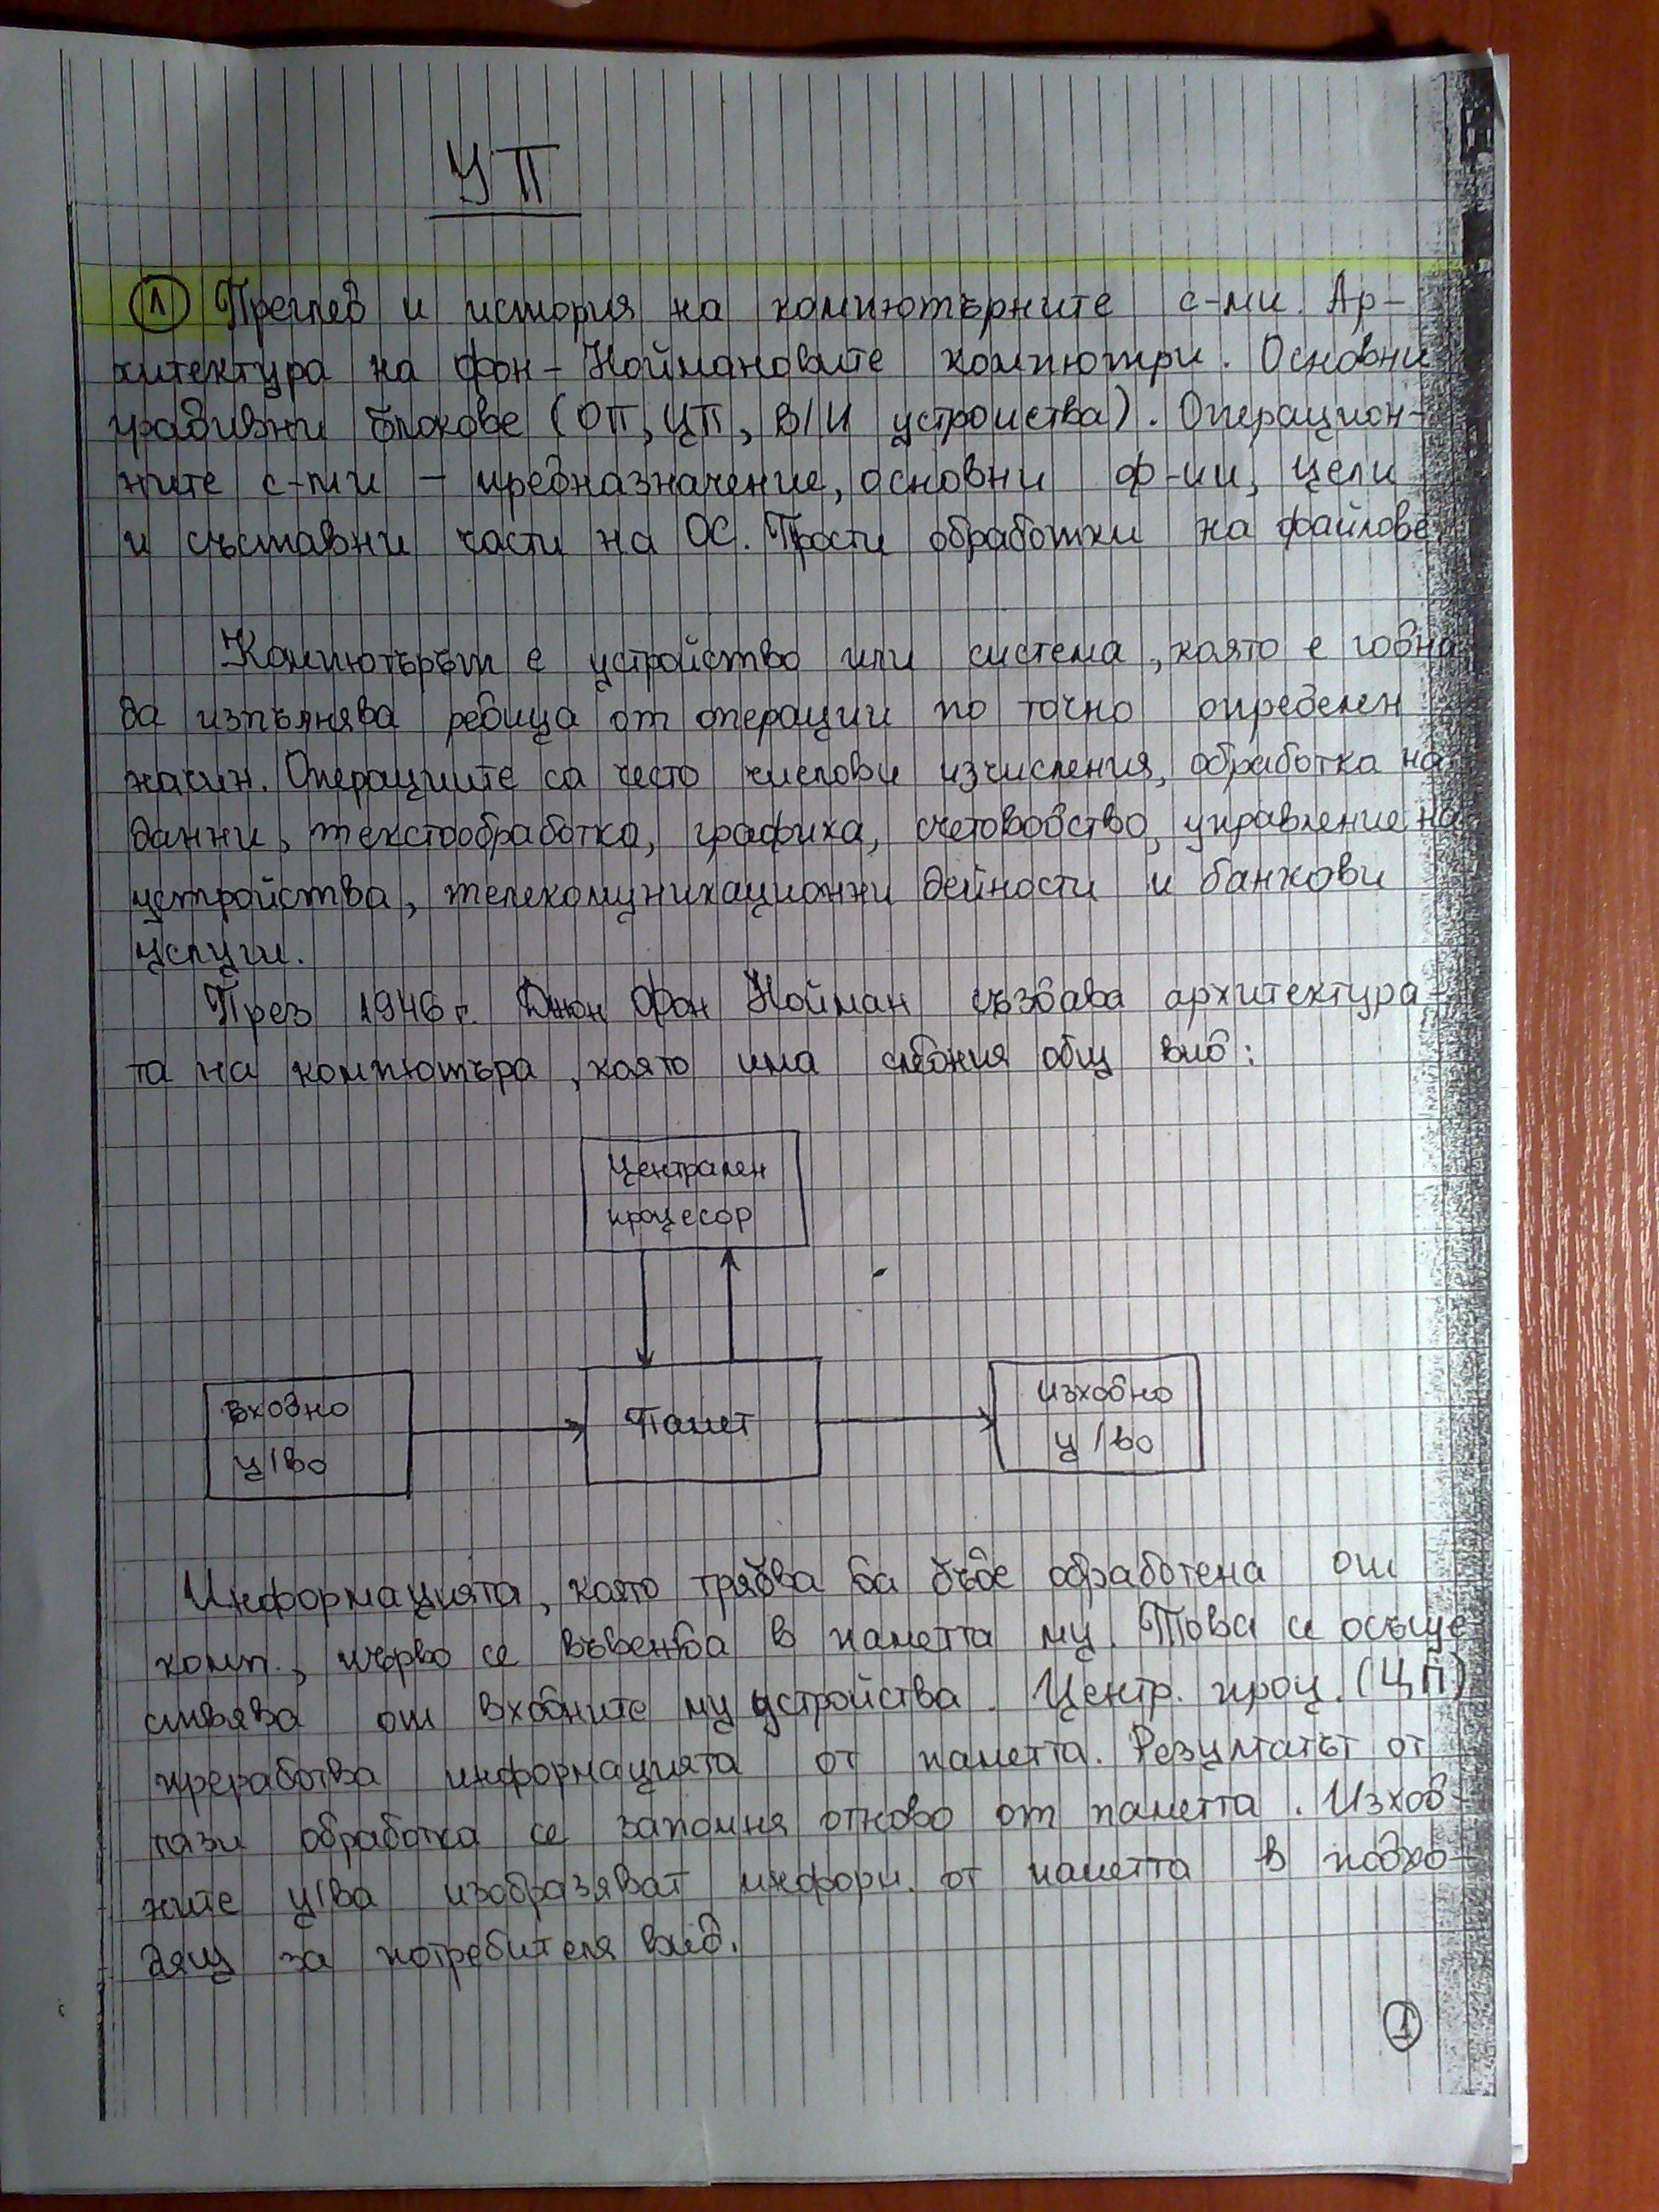 УП
① Преглед и история на компютърните с-ми. Ар-
хитектура на фон-Ноймановите компютри. Основни
градивни блокове (ОП, ЦП, В/И устройства). Операцион-
ните с-ми – предназначение, основни ф-ии, цели
и съставни части на ОС. Прости обработки на файлове
Компютърът е устройство или система, която е годна
да изпълнява редица от операции по точно определен
начин. Операциите са често числови изчисления, обработка на
данни, текстообработка, графика, счетоводство, управление на
устройства, телекомуникационни дейности и банкови
услуги.
През 1946 г. Джон Фон Нойман създава архитектура-
та на компютъра, която има следния общ вид:
Централен
процесор
Входно
у/во
Памет
изходно
у/во
Информацията, която трябва да бъде обработена от
комп., първо се въвежда в паметта му. Това се осъще
ствява от входните му устройства. Центр. проц. (ЦП)
преработва информацията от паметта. Резултатът от
тази обработка се запомня отново от паметта. Изход-
ните у/ва изобразяват информ. от паметта в подхо-
дящ за потребителя вид.
1